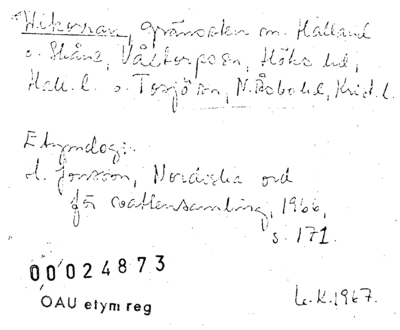 Hikorran, gränssten m. Halland
o. Skåne, Våxtorp sn, Höks hd,
Hall. l. o. Torsjö sn, N. Åsbo hd, Krist. l.
Etymologi:
H. Jonsson, Nordiska ord
för vattensamling, 1966,
s. 171.
00024873
OAU etym reg
1967.